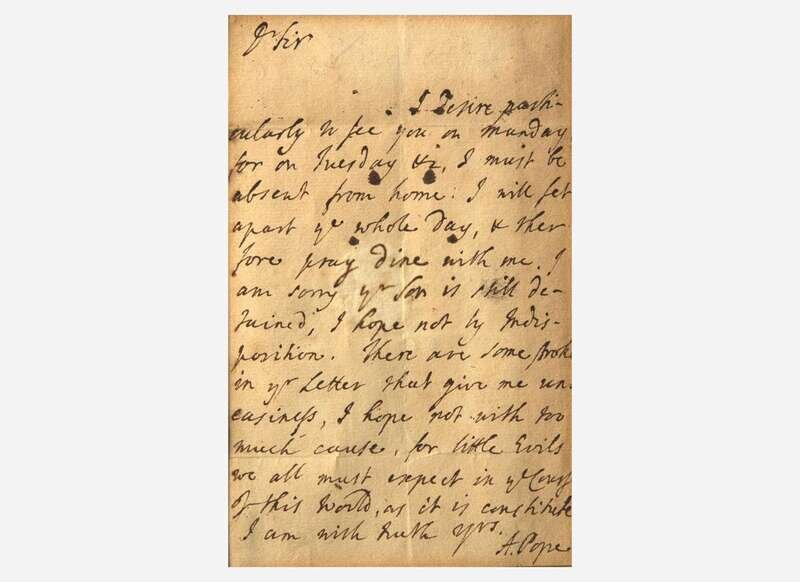 Dr Sir
I Desire parti-
cularly to see you on munday
for on Tuesday &c, I must be
absent from home: I will set
apart ye whole day, & ther
fore pray dine with me. I
am sorry yr Son is still de-
tained, I hope not by Indis-
position. There are some
in yr Letter that give me un-
easiness, I hope not with too
much cause, for little Evils
we all must expect in ye Cours
of this World, as it is constitute
I am with truth yrs.
A. Pope